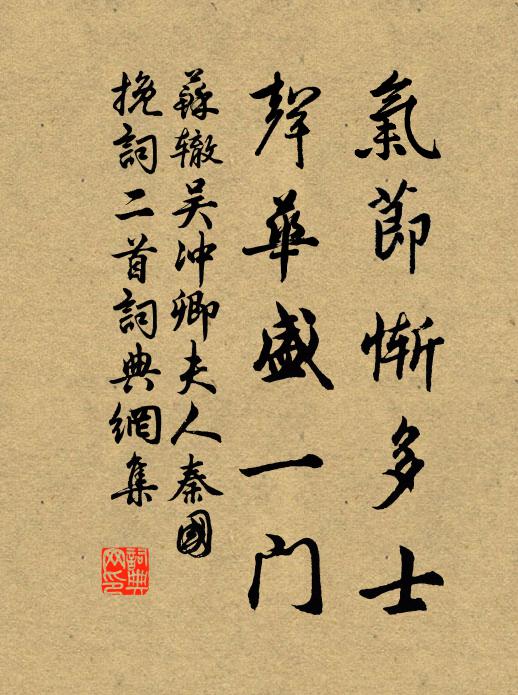 氣節慚多士
聲華盛一門
蘇辙吴冲卿夫人秦國
挽詞二首詞典網集
詞典网印